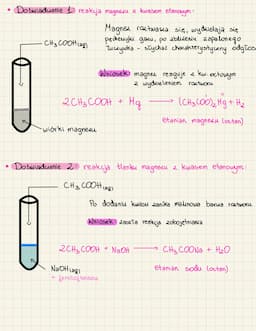 • Doświadczenie 1 reakcja magnezu z kwasem etanowym:
Magnez roztwarza się, wydzielają się
pęcherzyki gazu, po zbliżeniu zapalonego
łuczywka - słychać charakterystyczny odgłos
CH₃COOH(aq)
Wniosek: magnez reaguje z kw. octowym
z wydzieleniem wodoru
2CH₃COOH + Mg → (CH₃COO)₂Mg + H₂
Etanian magnezu (octan)
wiórki magnezu
• Doświadczenie 2 reakcja tlenku magnezu z kwasem etanowym:
CH₃COOH(aq)
Po dodaniu kwasu zanika malinowa barwa roztworu
Wniosek: zaszła reakcja zobojętniania
2CH₃COOH + NaOH → CH₃COONa + H₂O
Etanian sodu (octan)
NaOH(aq)
+ fenoloftaleina